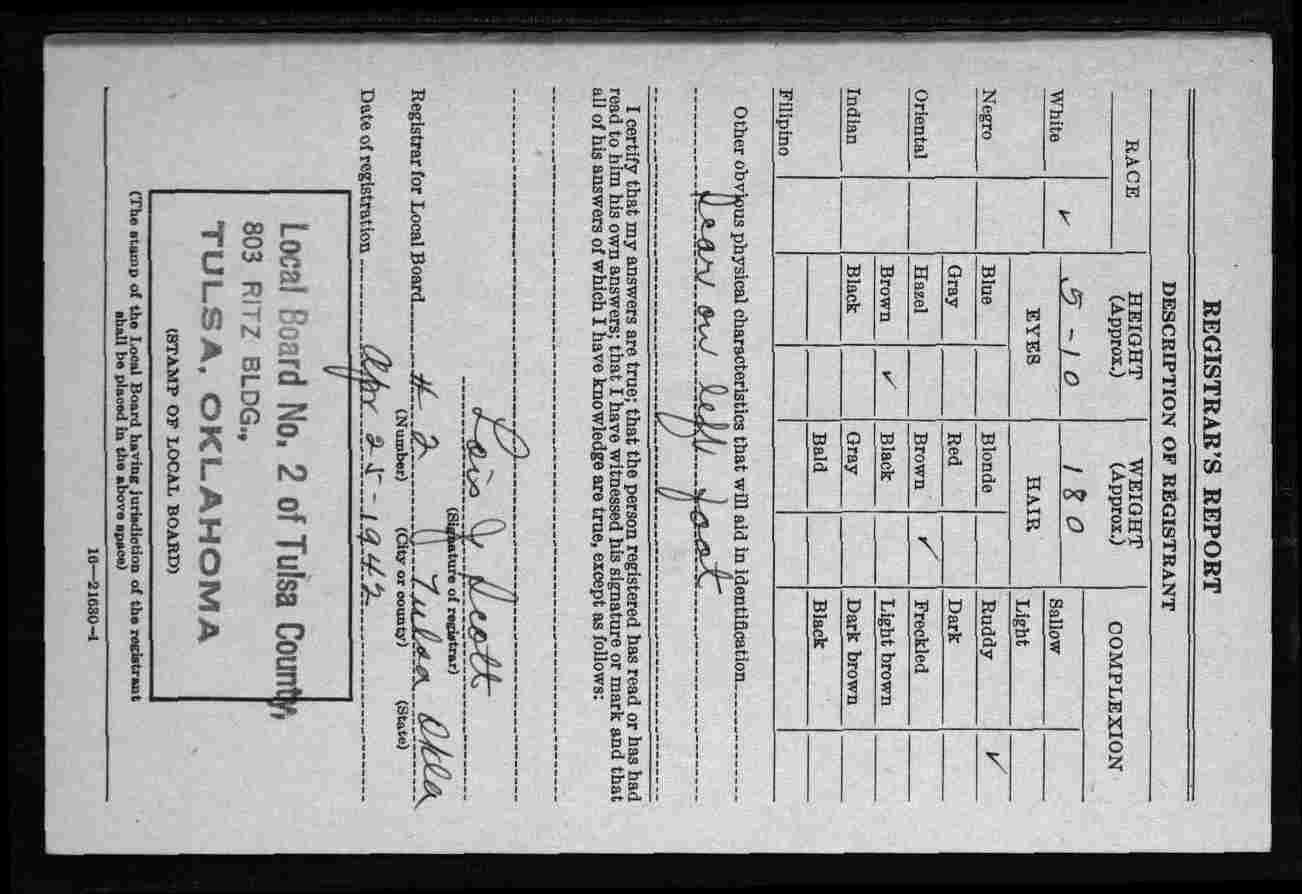 REGISTRAR'S REPORT
DESCRIPTION OF REGISTRANT
RACE HEIGHT (Approx.) WEIGHT (Approx.) COMPLEXION
White ✓ 5-10 180 Sallow
EYES HAIR Light
Negro Blue Blonde Ruddy ✓
Gray Red Dark
Oriental Hazel Brown ✓ Freckled
Brown ✓ Black Light brown
Indian Black Gray Dark brown
Bald Black
Filipino
Other obvious physical characteristics that will aid in identification
Scar on left foot
I certify that my answers are true; that the person registered has read or has had
read to him his own answers; that I have witnessed his signature or mark and that
all of his answers of which I have knowledge are true, except as follows:
Lois J Scott
(Signature of registrar)
Registrar for Local Board # 2 Tulsa Okla
(Number) (City or county) (State)
Date of registration Apr 25-1942
Local Board No. 2 of Tulsa County,
803 RITZ BLDG.,
TULSA, OKLAHOMA
(STAMP OF LOCAL BOARD)
(The stamp of the Local Board having jurisdiction of the registrant
shall be placed in the above space)
16—21630-1